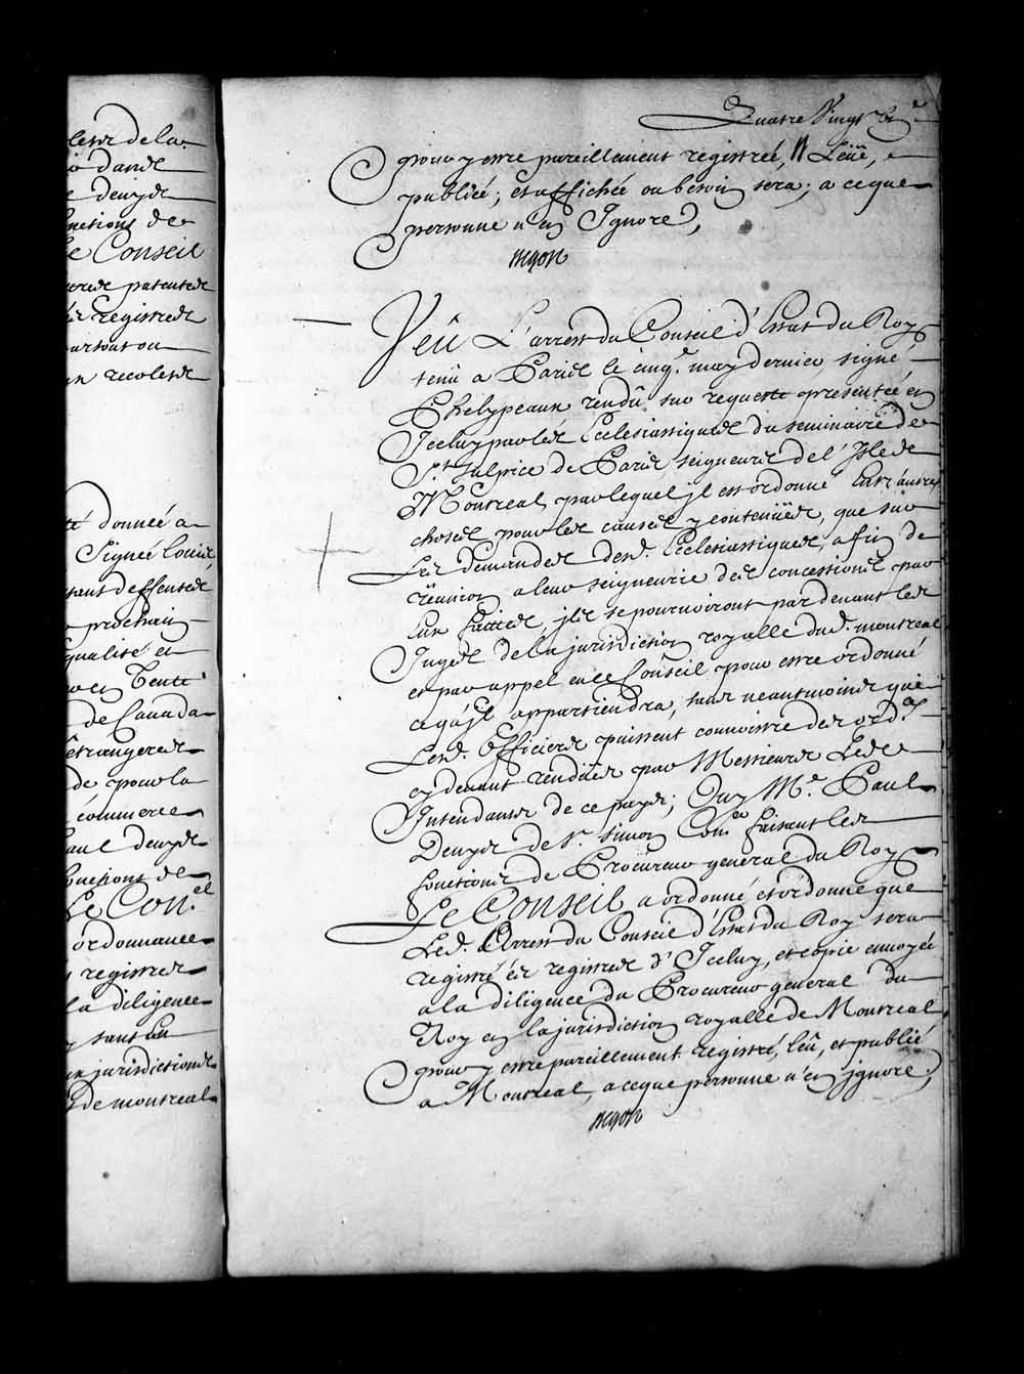 lettr de la
dand
denyd
nctions de
le Conseil
patented
Registred
partout ou
recoletd
té donneé a
Signeé Louis
sant deffensed
prochain
qualité et
en Tente
de Canada
etrangered
de pour la
commerce
aul denyd
fonctions de
Le Con.el
ordonnance
registred
la diligence
sant Lu
en jurisdictiond
de montreal
Quatre Vingt
pour y estre pareillement registreé, Leüe, e
publieé; et affichée ou besoin sera; a ceque
personne n'en Ignore,
Begon
Veû L'arrest du Conseil d'Estat du Roy
tenû a Parid le cinq.e may dernier signé
Phelypeaux rendû sur requeste presenteé en
Iceluy par led Ecclesiastiqued du seminaire de
S.t sulpice de Parid seigneurd de l'Isle de
Montreal, par lequel jl est ordonné Entr'autres
chosed pour led caused y contenüed, que sur
Led demanded desd. Ecclesiastiqued, afin de
reünion a leur seigneurie ded concessiond par
Eux faitted, jld se pourvoiront pardevant led
Juged de la jurisdiction royalle dud. montreal
et par appel en ce Conseil pour estre ordonné
ce qu'jl appartiendra, sand neantmoind que
Lesd. Officierd puissent connoistre ded ord.es
cy devant rendüed par Messieurd Led
Intendantd de ce payd; Ouy M.e Paul
Denyd de S.t simon Con.er faisant led
fonctiond de Procureur general du Roy
Le Conseil a ordonné et ordonne que
Led. Arrest du Conseil d'Estat du Roy sera
registré ed registred d'Iceluy, et copie envoyée
a la diligence du Procureur general du
Roy en la jurisdiction royalle de Montreal
pour y estre pareillement registré, leû, et publié
a Montreal, a ceque personne n'en jgnore,
Begon